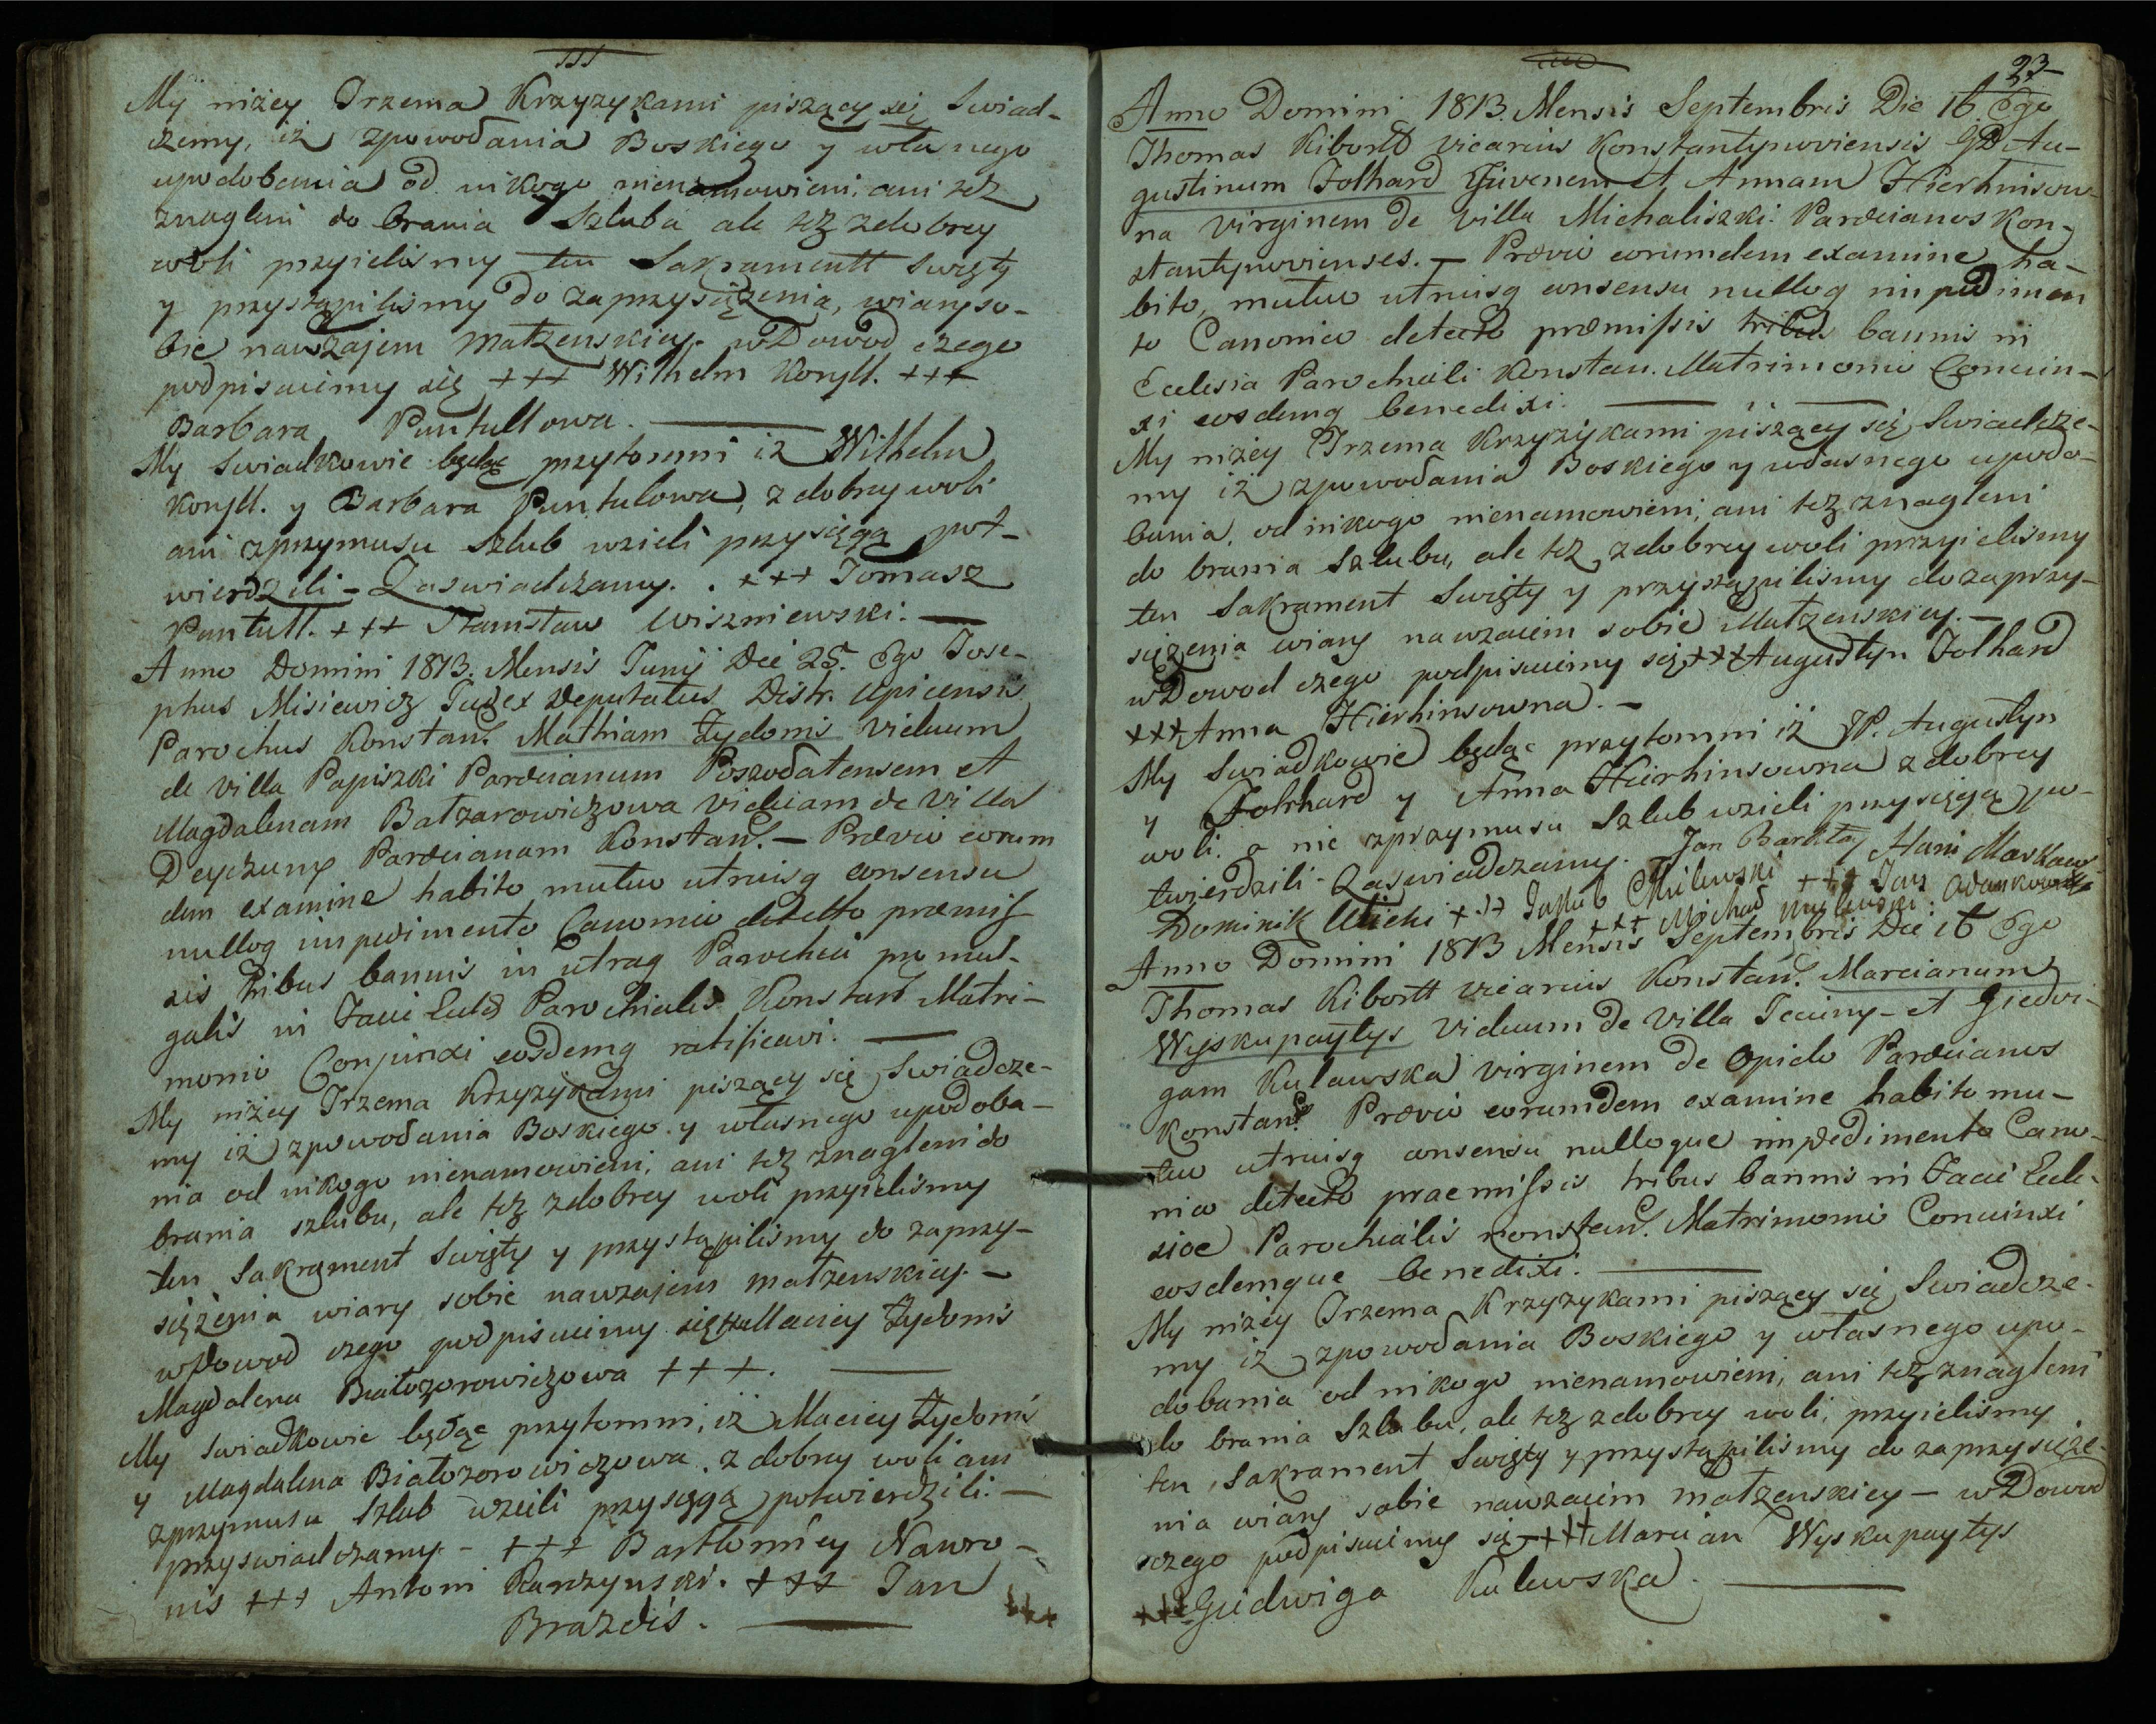 My niżey Trzema Krzyzykami piszący się Swiad-
czemy, iż zpowodania Boskiego y własnego
upodobania od nikogo nienamowieni, ani tez
znagleni do brania Szluba ale tez zdobrey
woli przyielismy ten Sakramentt Swięty
y przystąpilismy do zaprzysiężenia, wiary so-
bie nawzajem Małzenskiey. wDowod czego
podpisuiemy się +++ Wilhelm Konjtt. +++
Barbara Puntullowa.
My Swiadkowie będąc przytomni iż Wilhelm
Konjtt. y Barbara Puntulowa, z dobrey woli
ani zprzymusu Szlub wzieli przysięgą pot-
wierdzili - Zaswiadczamy. . +++ Tomasz
Puntutt. +++ Stanisław Wiszniewski.
Anno Domini 1813. Mensis Junij Die 25. Ego Jose-
phus Misiewicz Judex Deputatus Distr. Upicensis
Parochus Konstan. Mathiam Żydonis Viduum
de villa Papiszki Parœcianum Poszodatensem et
Magdalenam Bałzarowiczowa Viduam de Villa
Deyczuny Parœcianam Konstan. - Prævio eorum
dem examine habito mutuo utriusq consensu
nulloq impedimento Canonico detecto præmiss
sis tribus bannis in utraq Parochia promul-
gatis in Facie Eccles Parochialis Konstan Matri-
monio Conjunxi eosdemq ratificavi.
My niżey Trzema Krzyzykami piszący się Swiadcze-
my iż zpowodania Boskiego y własnego upodoba-
nia od nikogo nienamowieni, ani tez znagleni do
brania szlubu, ale tez zdobrey woli przyielismy
ten Sakrament Swięty y przystąpilismy do zaprzy-
siężenia wiary sobie nawzajem małzenskiey. -
wDowod czego podpisuiemy się +++ Maciey Żydonis
Magdalena Białozorowiczowa +++.
My swiadkowie będąc przytomni, iż Maciey Żydonis
y Magdalena Białozorowiczowa. z dobrey woli ani
zprzymusu Szlub wzieli przysięgą potwierdzili. -
przyswiadczamy. - +++ Bartłomiey Nawro-
nis +++ Antoni Karczynski. +++ Jan
Brazdis.
23
Anno Domini 1813. Mensis Septembris Die 16 Ego
Thomas Kibortt vicarius Konstantynoviensis GD Au-
gustinum Folhard Juvenem et Annam Hierhinsow-
na Virginem de Villa Michaliszki Parœcianos Kon-
stantynovienses. - Prævio eorumdem examine ha-
bito, mutuo utriusq consensu nulloq impedimen
to Canonico detecto præmissis tribus bannis in
Ecclesia Parochiali Konstan. Matrimonio Coniun-
xi eosdemq benedixi.
My niżey Trzema Krzyzykami piszący się Swiadcze-
my iż zpowodania Boskiego y własnego upodo-
bania, od nikogo nienamowieni, ani tez znagleni
do brania Szlubu, ale tez zdobrey woli przyielismy
ten Sakrament Swięty y przystąpilismy do zaprzy-
siężenia wiary nawzaiem sobie Małzenskiey. -
wDowod czego podpisuiemy się +++ Augustyn Folhard
+++ Anna Hierhinsowna. -
My Swiadkowie będąc przytomni iż JP. Augustyn
y Folrhard y Anna Hierhinsowna z dobrey
woli. a nie zprzymusu Szlub wzieli przysięgą po-
twierdzili - Zaswiadczamy. Jan Barkłay
Dominik Ulicki +++ Jakub Milewski +++ Jan
+++ Michał
Anno Domini 1813 Mensis Septembris Die 16 Ego
Thomas Kibortt vicarius Konstan. Marcianum
Wyskupaytys Viduum de Villa Jeciuny - et Giedwi-
gam Kulawska virginem de Opido Parœcianos
Konstan. Prævio eorumdem examine habito mu-
tuo utriusq consensu nulloque impedimento Cano-
nico detecto praemissis tribus bannis in Facie Eccle-
siae Parochialis Konstan. Matrimonio Coniunxi
eosdemque benedixi.
My niżey Trzema Krzyzykami piszący się Swiadcze-
my iż zpowodania Boskiego y własnego upo-
dobania od nikogo nienamowieni, ani tez znagleni
do brania Szlubu, ale tez zdobrey woli, przyielismy
ten, Sakrament Swięty y przystąpilismy do zaprzysięże-
nia wiary sobie nawzaiem małzenskiey - wDowod
czego podpisuiemy się - +++ Marcian Wyskupaytys
+++ Giedwiga Kulewska.